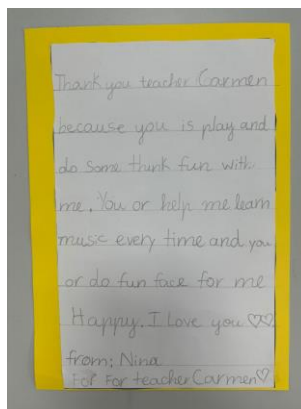 Thank you teacher Carmen
because you is play and
do some think fun with
me. You or help me learn
music every time and you
or do fun face for me
Happy. I love you ♡♡
from: Nina
For For teacher Carmen♡